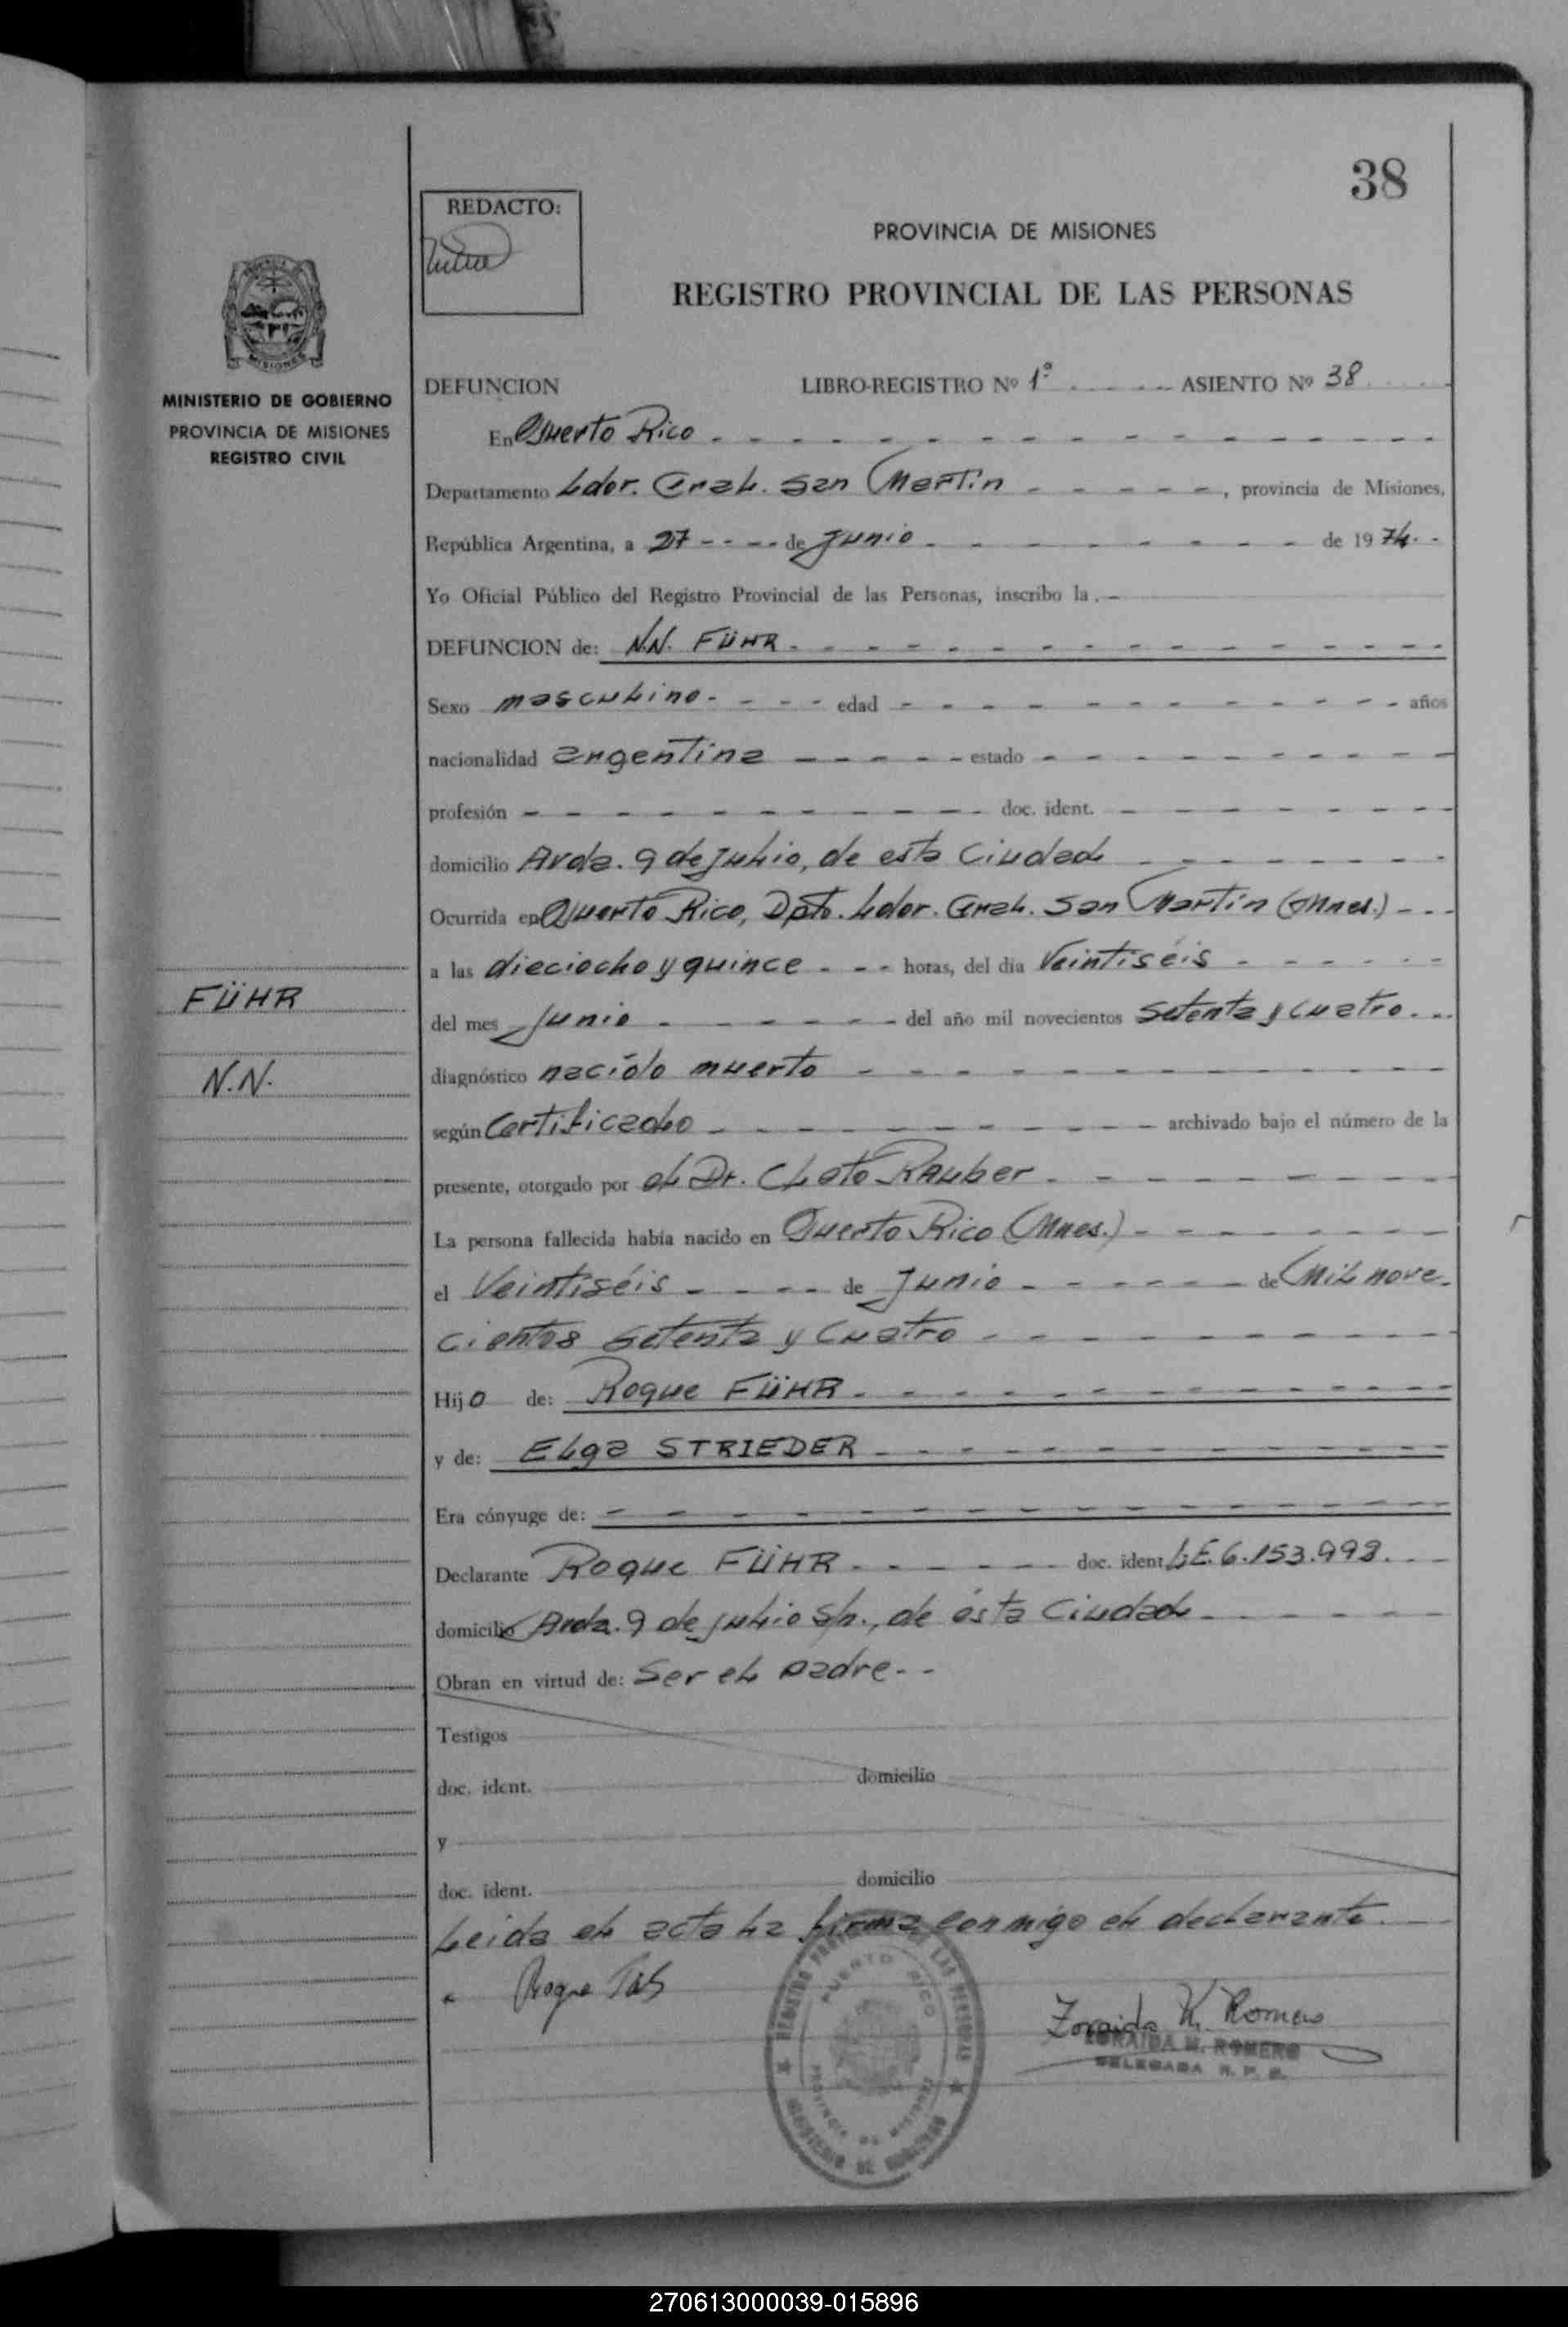 38
REDACTO:
PROVINCIA DE MISIONES
REGISTRO PROVINCIAL DE LAS PERSONAS
MISIONES
MINISTERIO DE GOBIERNO
PROVINCIA DE MISIONES
REGISTRO CIVIL
DEFUNCION LIBRO-REGISTRO Nº 1º ASIENTO Nº 38
En Puerto Rico
Departamento Ldor. Gral. San Martin, provincia de Misiones,
República Argentina, a 27 de Junio de 1974
Yo Oficial Público del Registro Provincial de las Personas, inscribo la
DEFUNCION de: N.N. FÜHR
Sexo masculino edad años
nacionalidad argentina estado
profesión doc. ident.
domicilio Avda. 9 de Julio, de esta Ciudad
Ocurrida en Puerto Rico, Dpto. Ldor. Gral. San Martin (Mnes.)
a las dieciocho y quince horas, del día Veintiséis
FÜHR
del mes Junio del año mil novecientos setenta y cuatro
N.N.
diagnóstico nacido muerto
según Certificado archivado bajo el número de la
presente, otorgado por el Dr. Cleto Rauber
La persona fallecida había nacido en Puerto Rico (Mnes.)
el Veintiséis de Junio de Mil nove-
cientos setenta y cuatro
Hijo de: Roque FÜHR
y de: Elga STRIEDER
Era cónyuge de:
Declarante Roque FÜHR doc. ident. L.E. 6.153.993
domicilio Avda. 9 de julio s/n., de ésta Ciudad
Obran en virtud de: Ser el padre
Testigos
doc. ident. domicilio
y
doc. ident. domicilio
Leida el acta la firma conmigo el declarante.
Roque
REGISTRO PROVINCIAL DE LAS PERSONAS
PUERTO RICO
PROVINCIA DE MISIONES
MINISTERIO DE GOBIERNO
Zoraida M. Romero
ZORAIDA M. ROMERO
DELEGADA R. P. P.
270613000039-015896